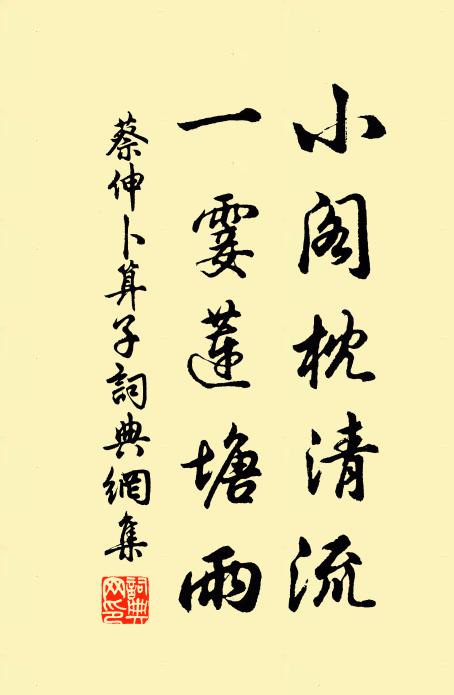 小閣枕清流
一霎蓮塘雨
蔡伸卜算子詞典網集
詞典
网印